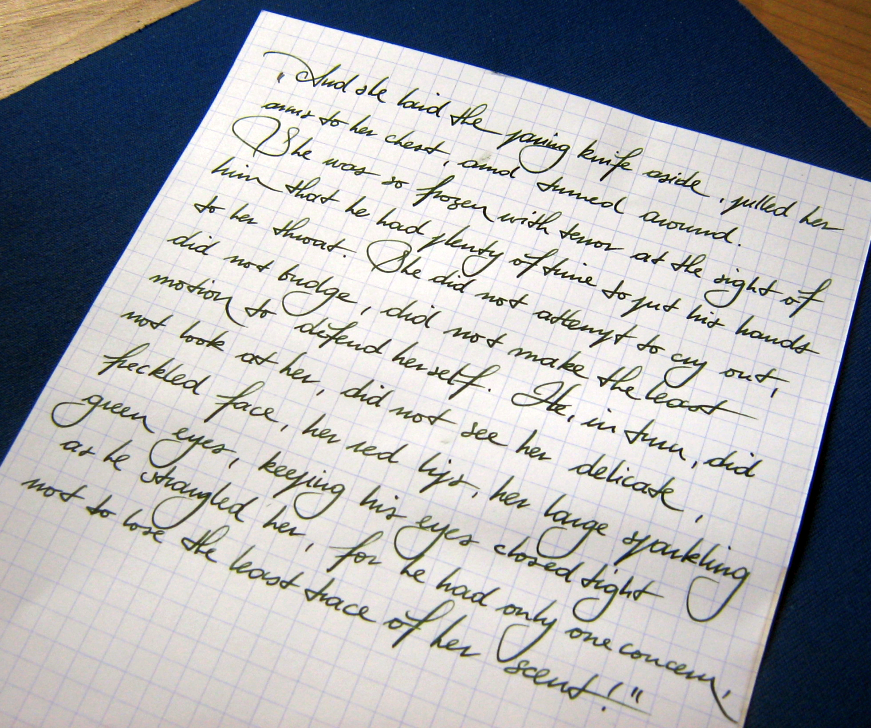 "And she laid the paring knife aside, pulled her
arms to her chest, and turned around.
She was so frozen with terror at the sight of
him that he had plenty of time to put his hands
to her throat. She did not attempt to cry out,
did not budge, did not make the least
motion to defend herself. He, in turn, did
not look at her, did not see her delicate,
freckled face, her red lips, her large sparkling
green eyes, keeping his eyes closed tight
as he strangled her, for he had only one concern,
not to lose the least trace of her scent!"